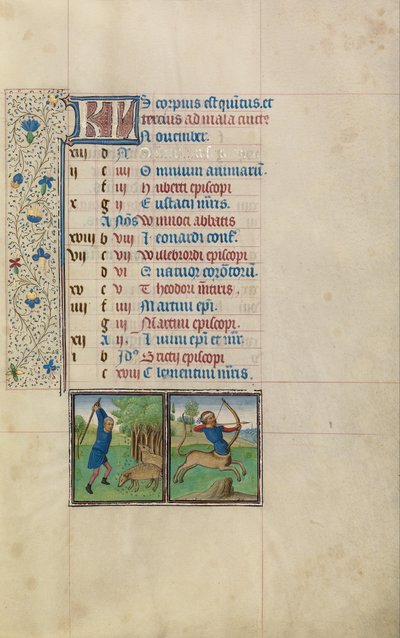 KL Scorpius est quintus et
tercius ad mala cincte
Nouember.
xiii d N
ii e iiii Omnium animarū.
f iii Huberti episcopi
x g ii Eustacii mr̄is.
A Nōs Winnoci abbatis
xviii b viii Leonardi conf.
vii c vii Willebrordi episcopi
d vi Quatuor corōtorū.
xv e v Theodori mr̄iris.
iiii f iiii Martini epī.
g iii Martini episcopi.
xii A ii Liuini epī et mr̄.
i b Id᷒ Brictii episcopi
c xviii Clementini mr̄is.